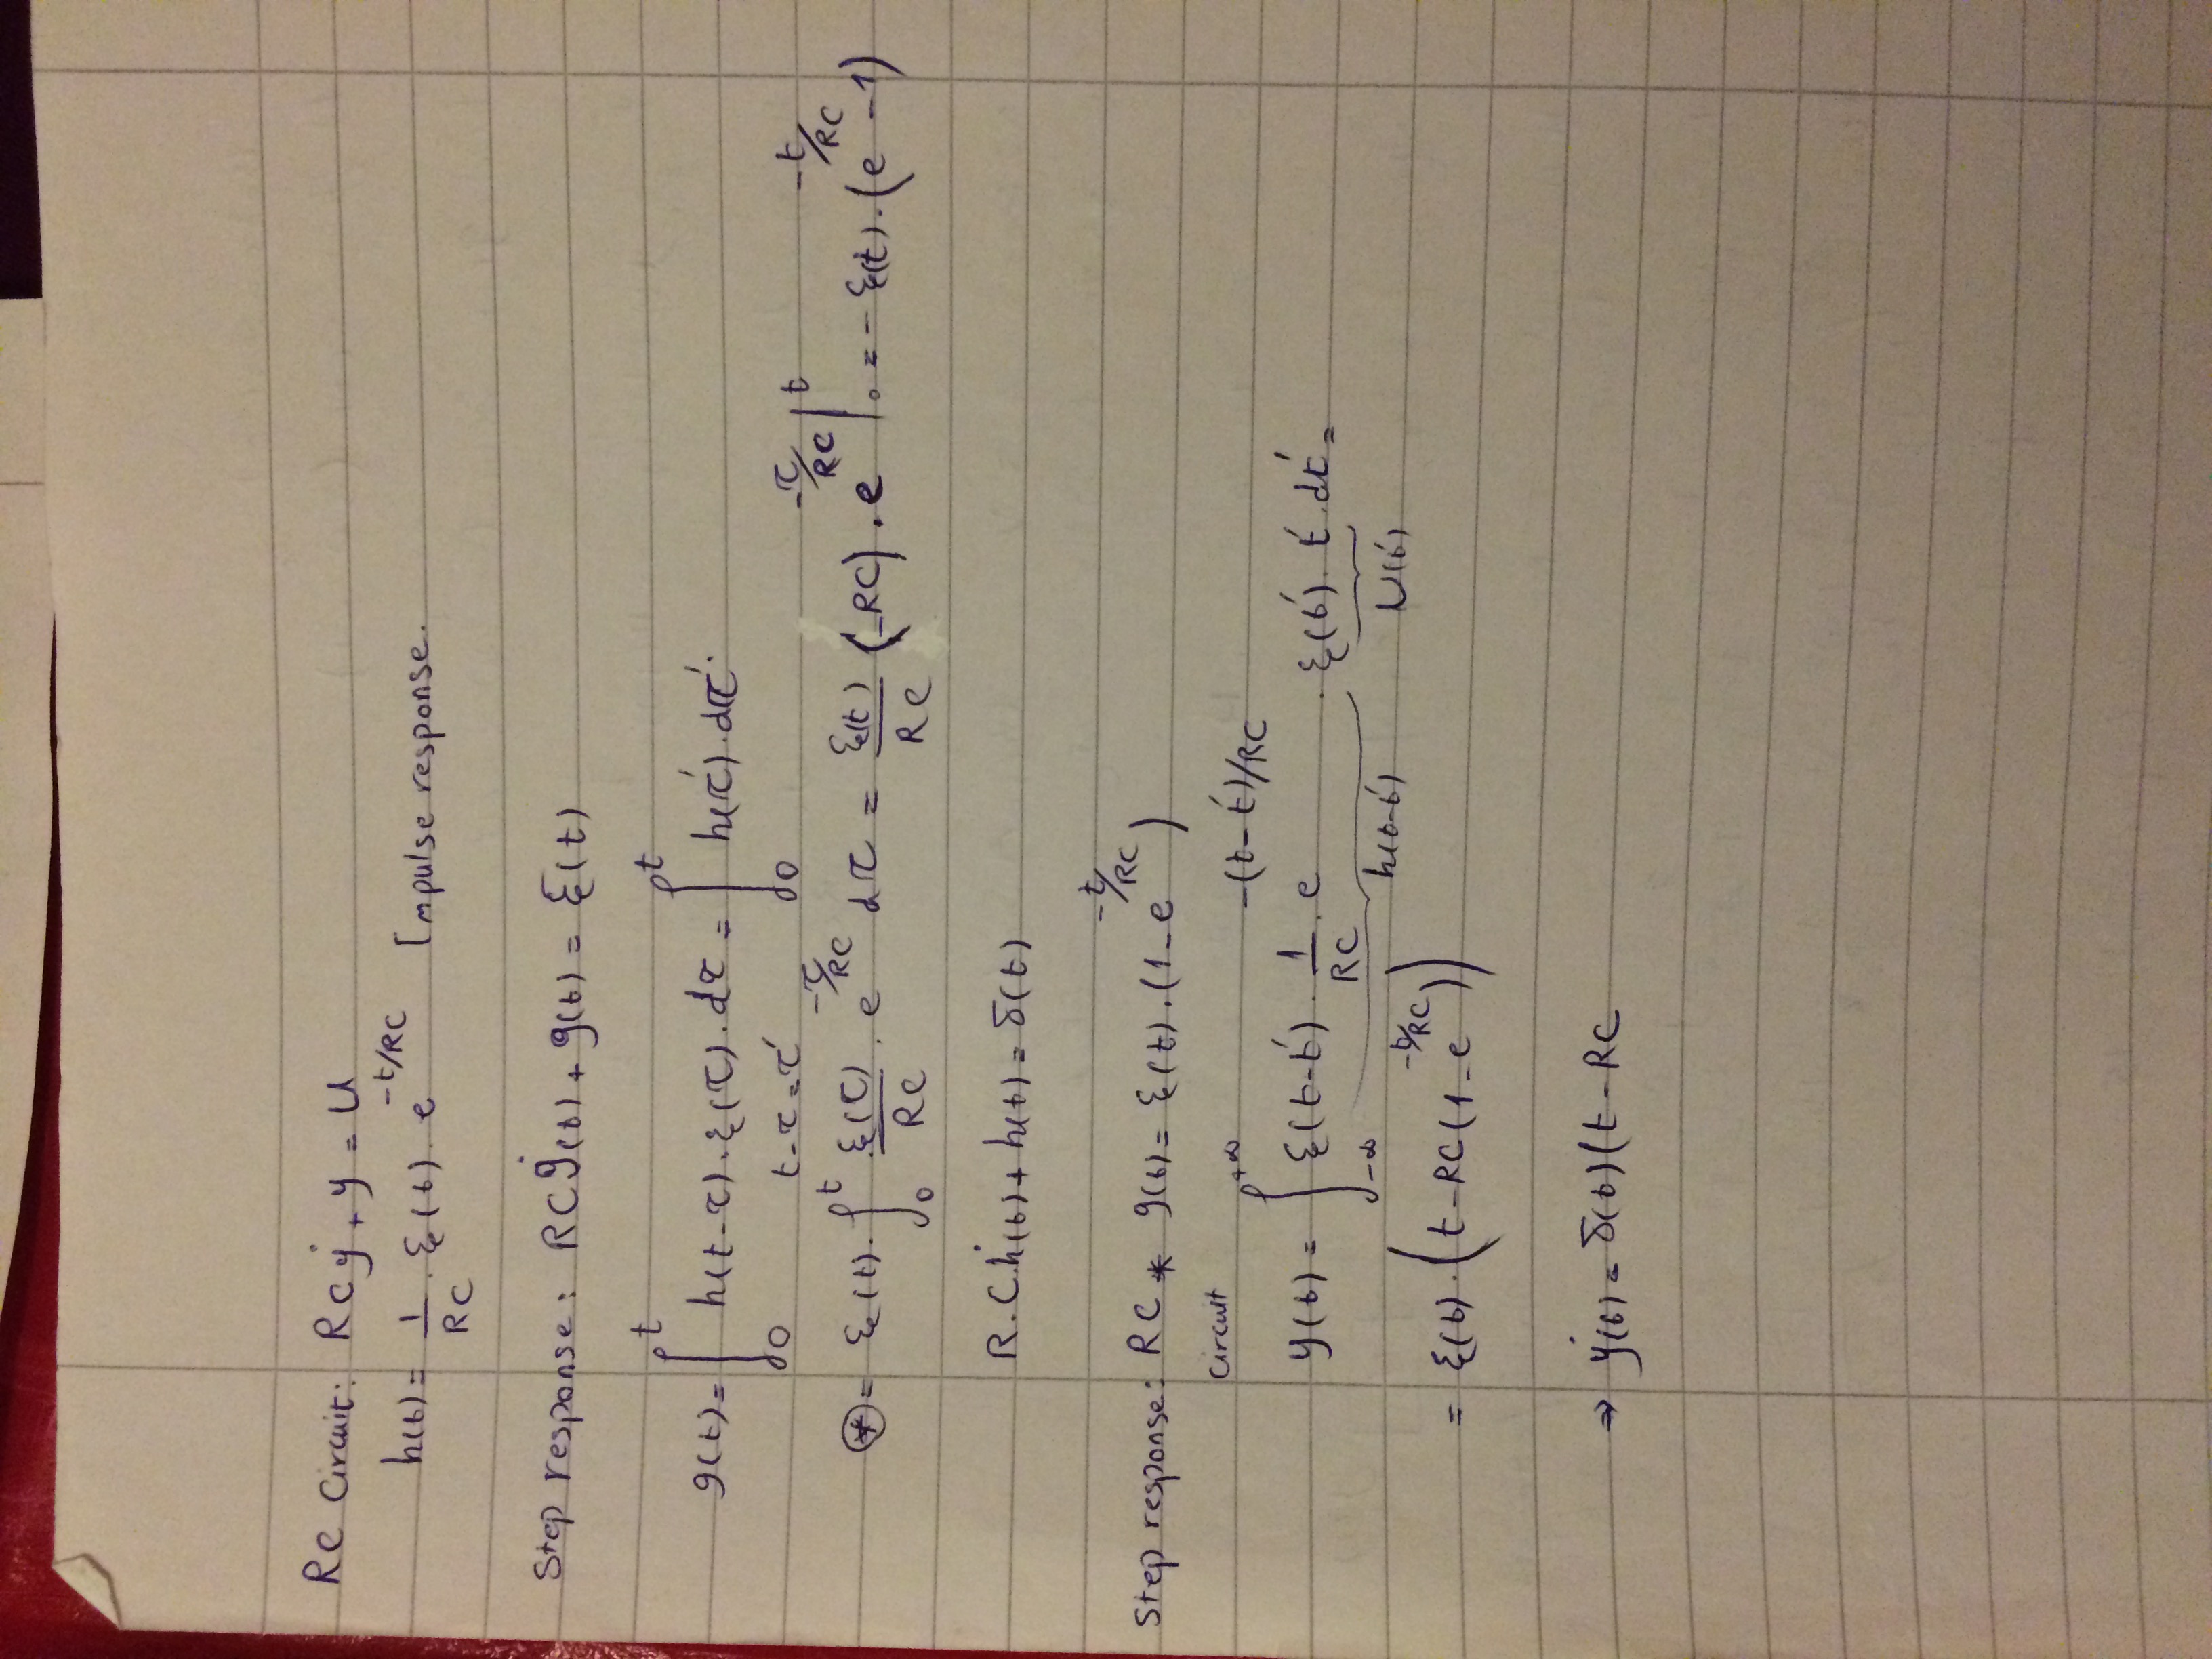 RC Circuit: RCẏ + y = U
h(t) = 1/RC · ξ(t) · e^(-t/RC) Impulse response.
Step response: RCġ(t) + g(t) = ξ(t)
g(t) = ∫₀ᵗ h(t-τ) · ξ(τ) · dτ = ∫₀ᵗ h(τ') · dτ'
t-τ = τ'
⊛ = ξ(t) · ∫₀ᵗ ξ(τ)/RC · e^(-τ/RC) dτ = ξ(t)/RC (-RC) · e^(-τ/RC) |₀ᵗ = - ξ(t) · (e^(-t/RC) - 1)
R.C.ḣ(t) + h(t) = δ(t)
Step response: RC * g(t) = ξ(t) · (1 - e^(-t/RC))
Circuit
y(t) = ∫_(-∞)^(+∞) ξ(t-t') · 1/RC · e^(-(t-t')/RC) · ξ(t') · t' · dt' =
h(t-t') U(t')
= ξ(t) · (t - RC(1 - e^(-t/RC)))
⇒ ẏ(t) = δ(t)(t - RC